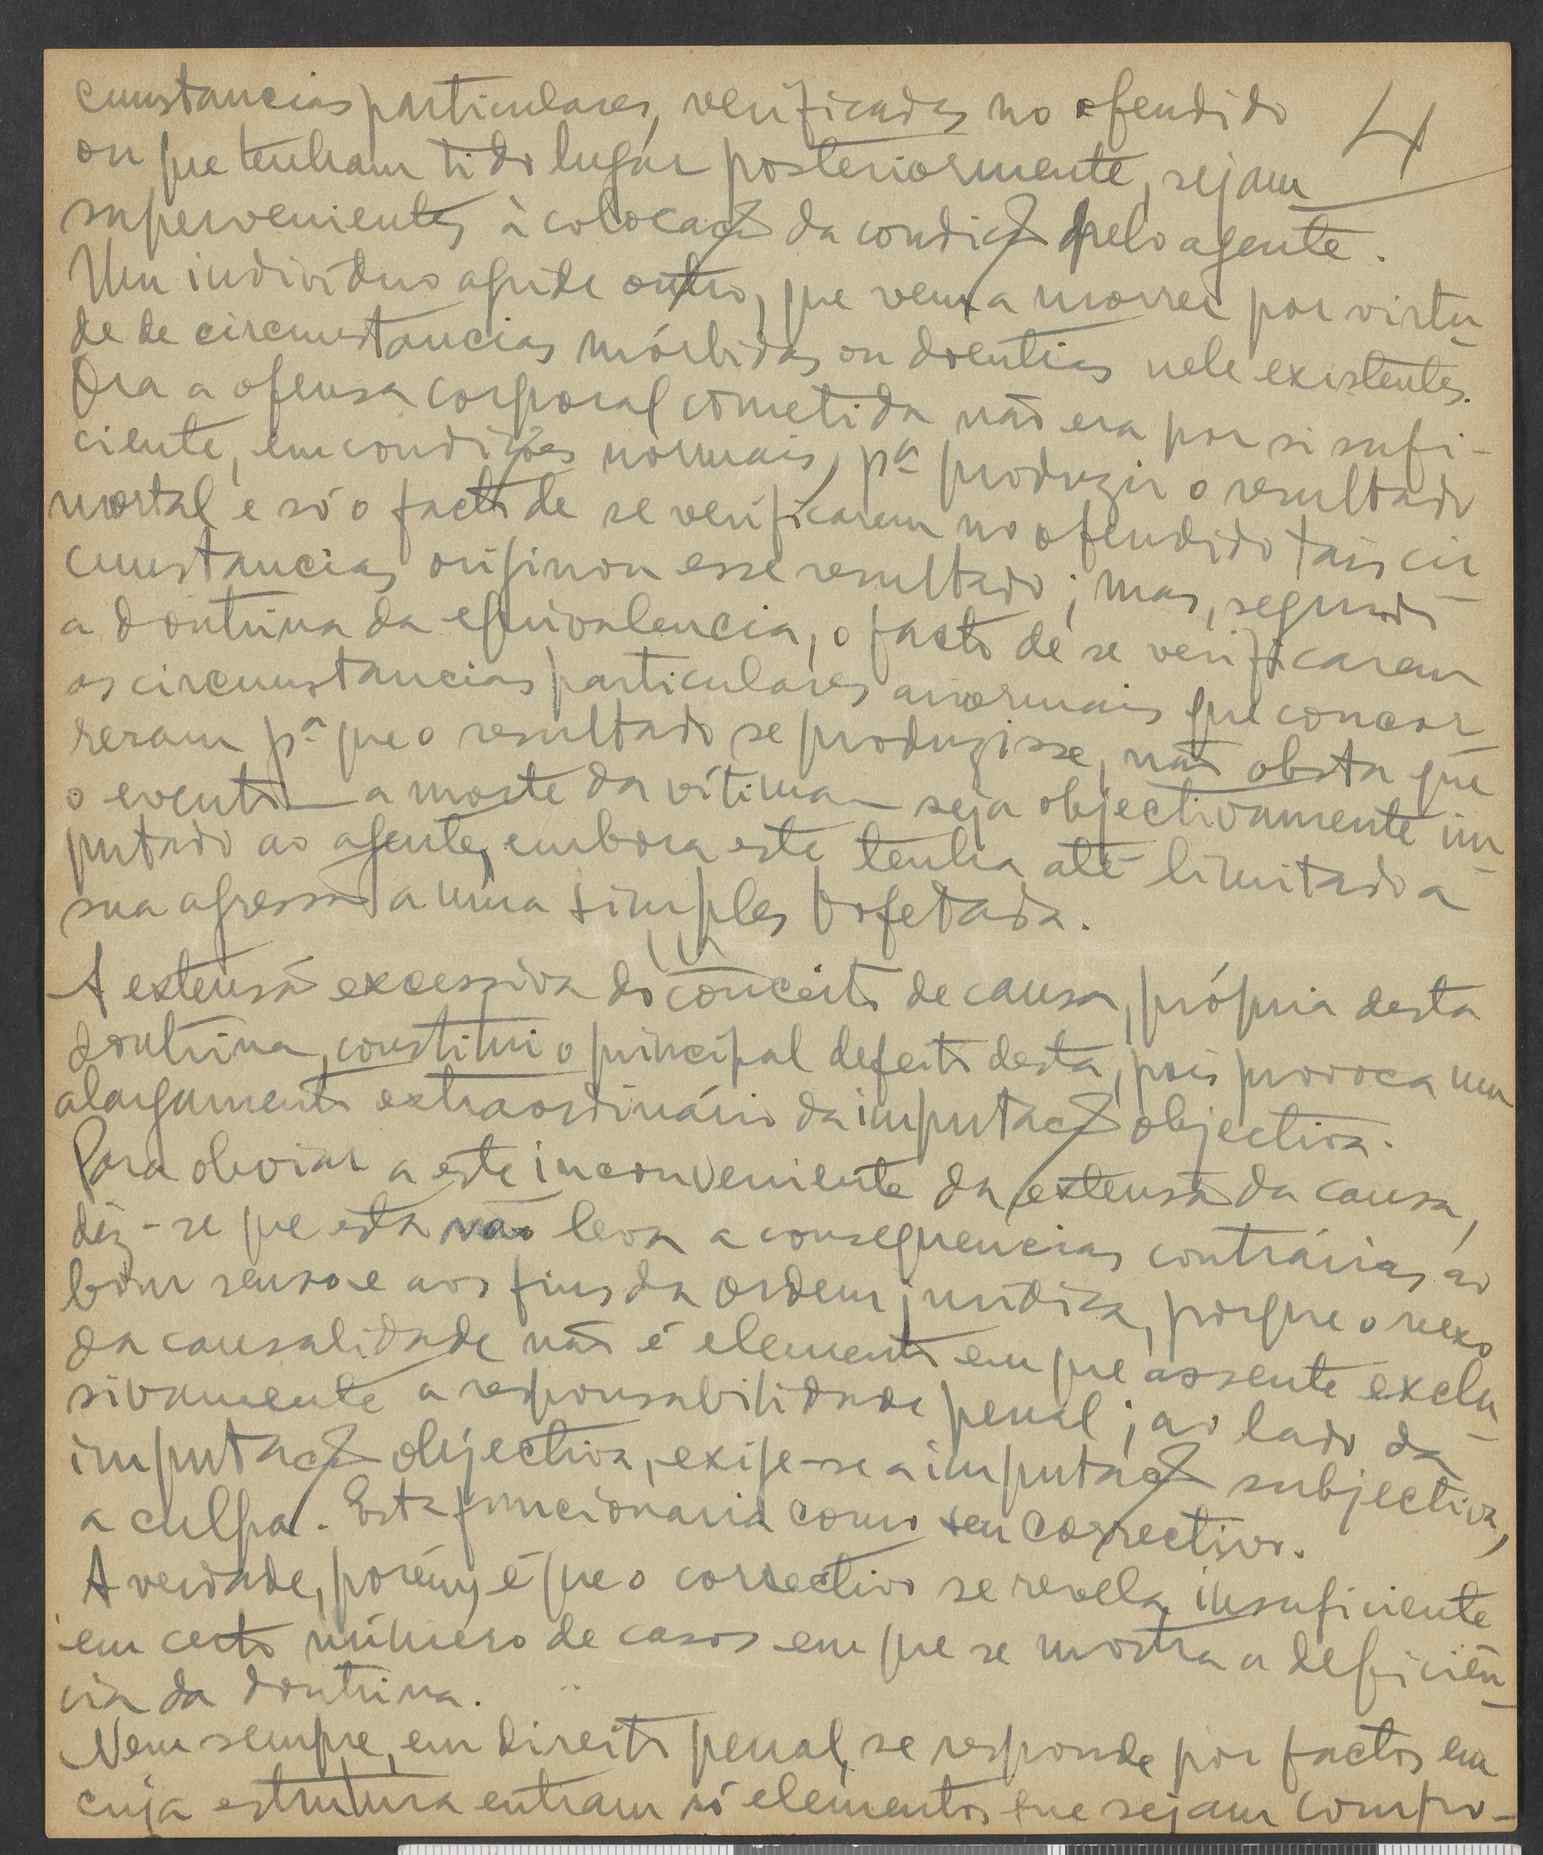 cunstancias particulares, verificadas no ofendido
4
ou que tenham tido lugar posteriormente, sejam
supervenientes à colocaçã da condiçã pelo agente.
Um individuo agride outro, que vem a morrer por virtu-
de de circunstancias mórbidas ou doentias nele existentes.
Ora a ofensa corporal cometida não era por si sufi-
ciente, em condições normais, pª produzir o resultado
mortal e só o facto de se verificarem no ofendido tais cir-
cunstancias originou esse resultado; mas, segundo
a doutrina da equivalencia, o facto de se verificarem
as circunstancias particulares anormais que concor-
reram pª que o resultado se produzisse, não obsta que
o evento — a morte da vítima — seja objectivamente im-
putado ao agente, embora este tenha até limitado a
sua agressão a uma simples bofetada.
A extensã excessiva do conceito de causa, própria desta
doutrina, constitui o principal defeito desta, pois provoca um
alargamento extraordinário da imputaçã objectiva.
Para obviar a este inconveniente da extensã da causa,
diz-se que esta não leva a consequencias contrárias ao
bom senso e aos fins da ordem jurídica, porque o nexo
da causalidade não é elemento em que assente exclu-
sivamente a responsabilidade penal; ao lado da
imputaçã objectiva, exige-se a imputaçã subjectiva,
a culpa. Esta funcionaria como seu correctivo.
A verdade, porém, é que o correctivo se revela insuficiente
em certo número de casos em que se mostra a deficiên-
cia da doutrina.
Nem sempre, em direito penal, se responde por factos em
cuja estrutura entram só elementos que sejam compro-